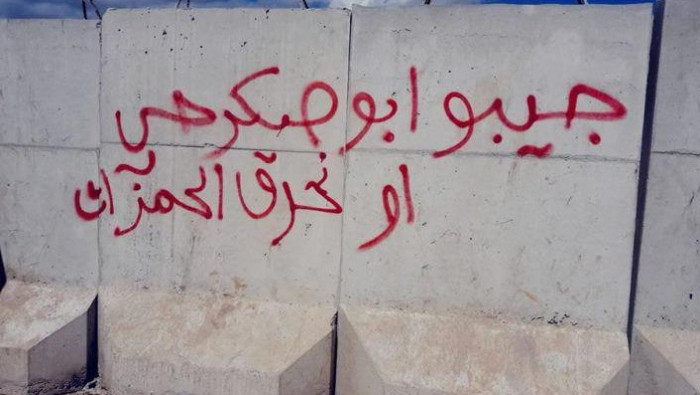 جيبو ابو صكر حي
او نحرق الحمزات